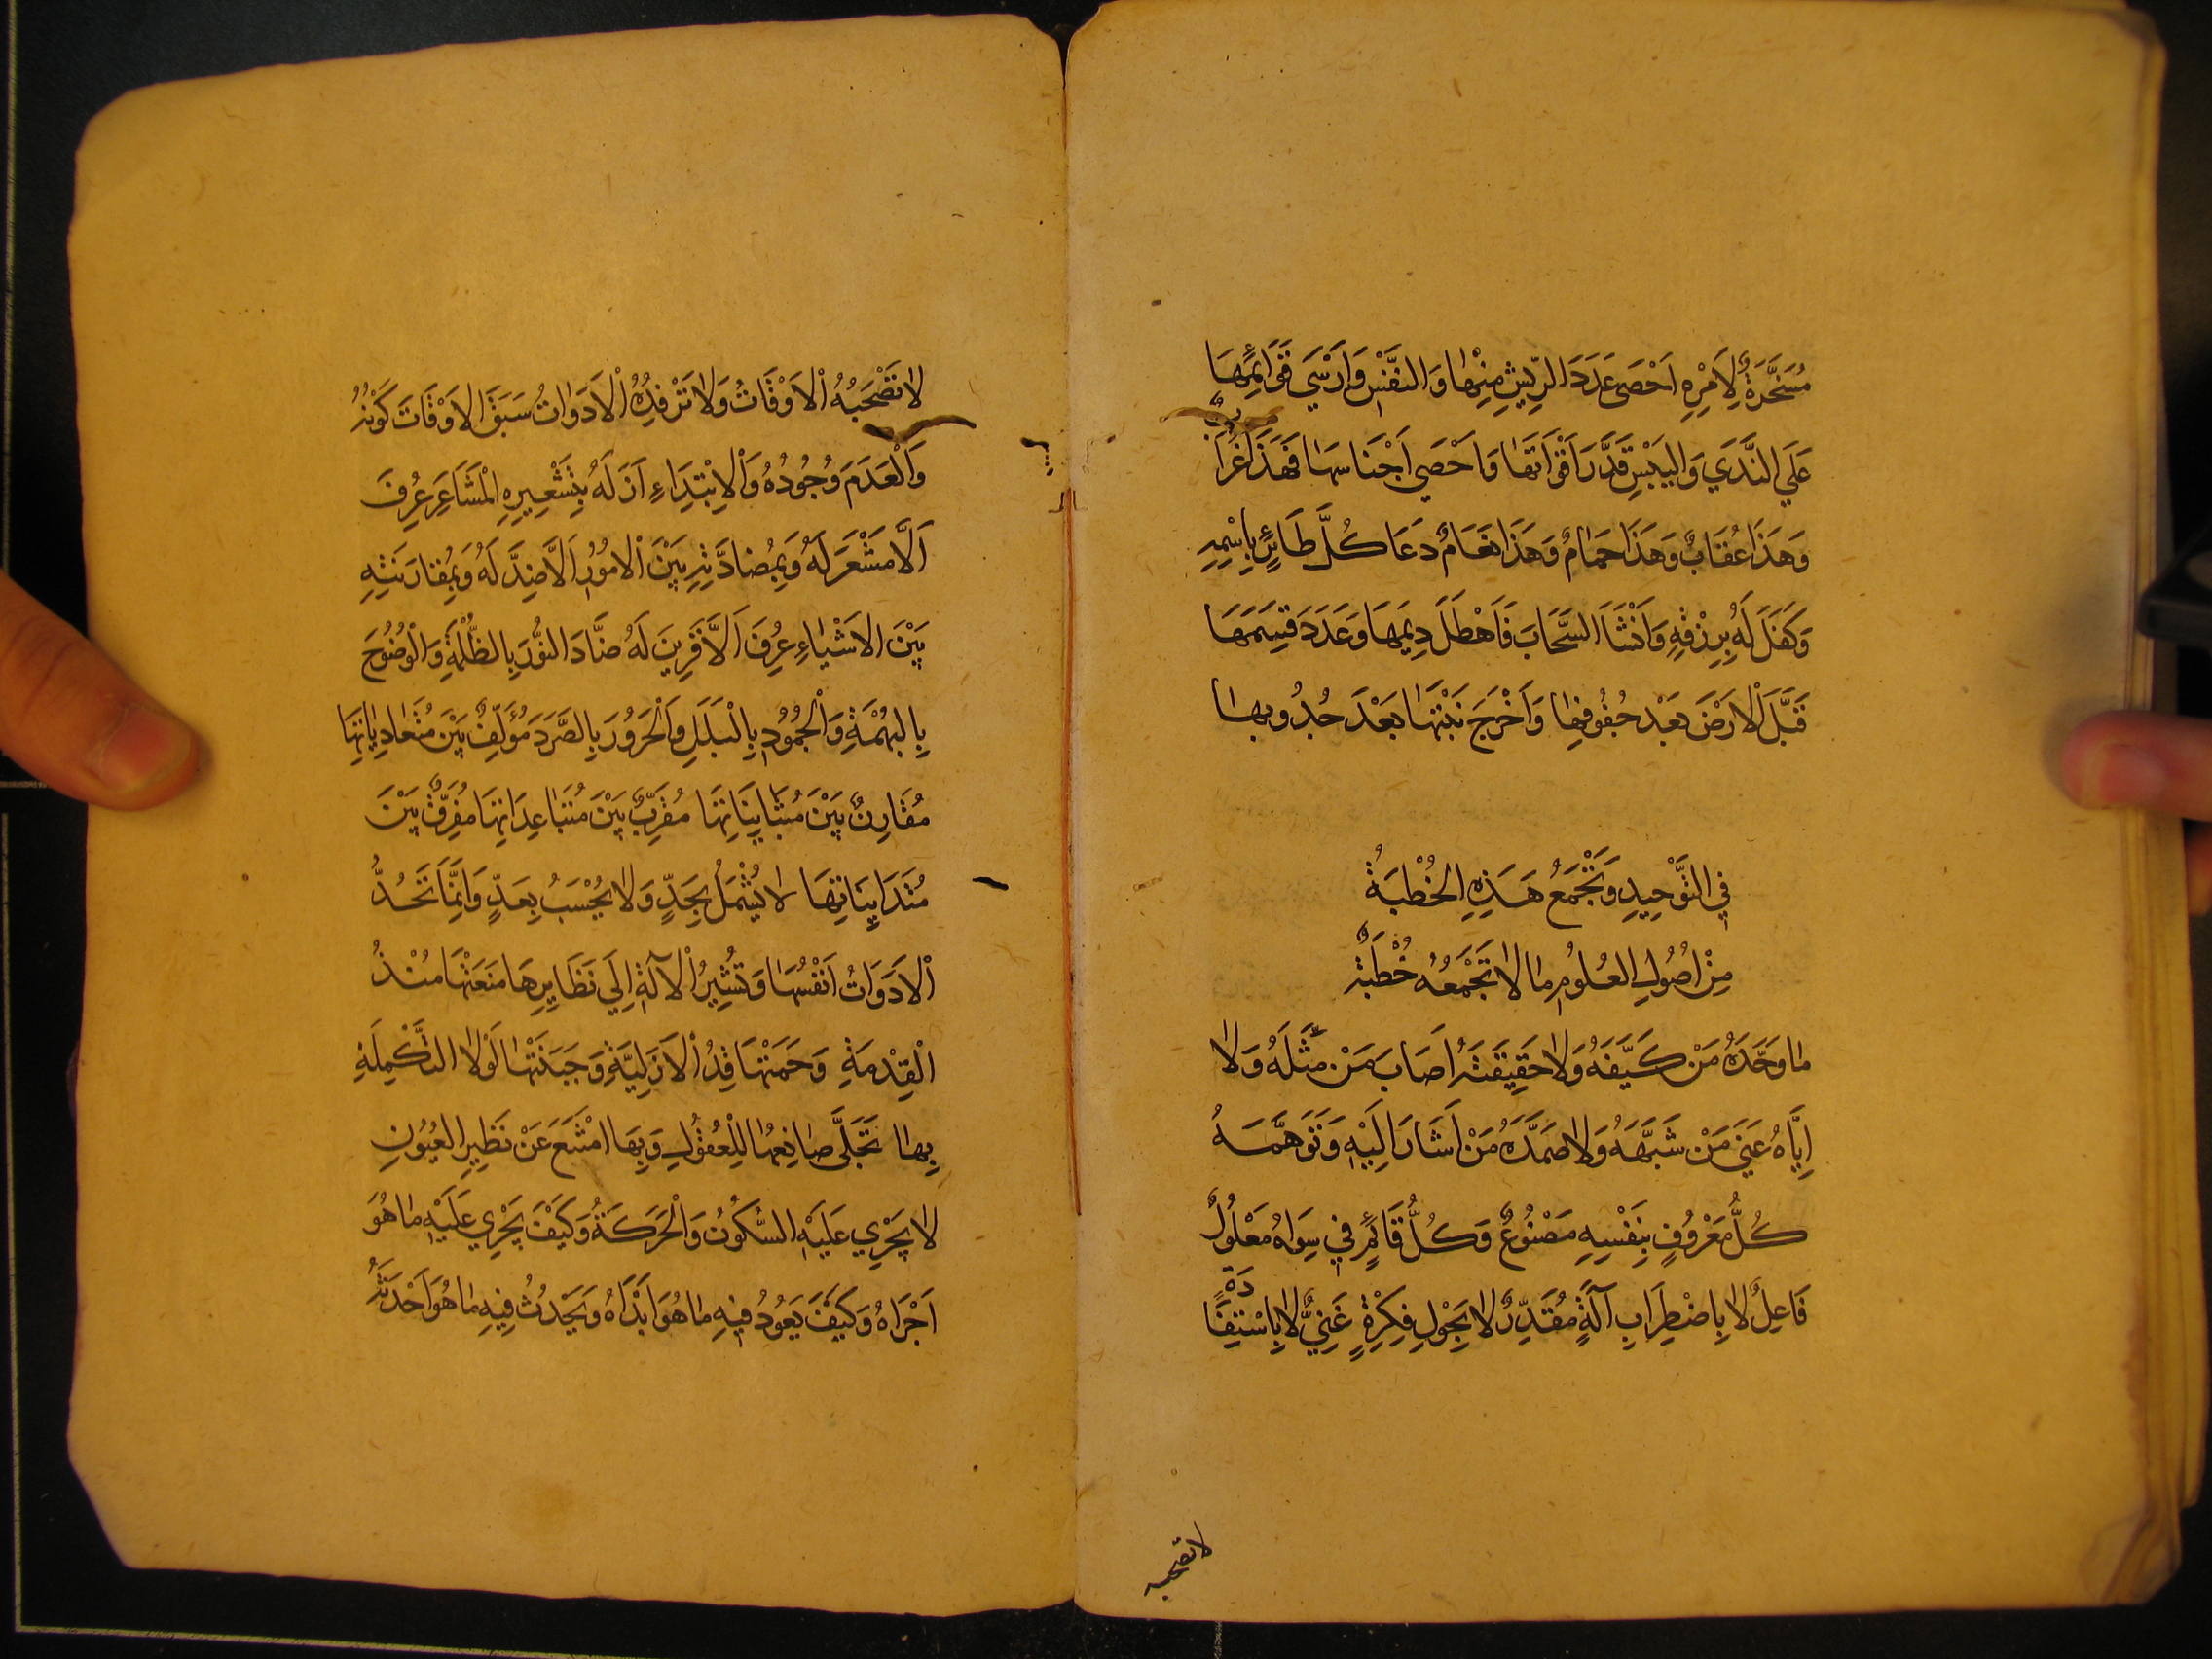 مُسَخَّرَةٌ لِاَمْرِهِ اَحْصَى عَدَدَ الرِّيشِ مِنْهَا وَالنَّفَسِ وَاَرْسَي قَوَائِمَهَا
عَلَي النَّدَي وَاليَبْسِ قَدَّرَ اَقْوَاتَهَا وَاَحْصَي اَجْنَاسَهَا فَهَذَا غُرَابٌ
وَهَذَا عُقَابٌ وَهَذَا حَمَامٌ وَهَذَا نَعَامٌ دَعَا كُلَّ طَائِرٍ بِاسْمِهِ
وَكَفَلَ لَهُ بِرِزْقِهِ وَاَنْشَاَ السَّحَابَ فَاَهْطَلَ دِيَمَهَا وَعَدَدَ قِسَمَهَا
فَبَّلَ الْاَرْضَ بَعْدَ جُفُوفِهَا وَاَخْرَجَ نَبْتَهَا بَعْدَ جُدُوبِهَا
فِي التَّوْحِيدِ وَتَجْمَعُ هَذِهِ الخُطْبَةُ
مِنْ اُصُولِ العُلُومِ مَا لَا تَجْمَعُهُ خُطْبَةٌ
مَا وَحَّدَهُ مَنْ كَيَّفَهُ وَلَا حَقِيقَتَهُ اَصَابَ مَنْ مَثَّلَهُ وَلَا
اِيَّاهُ عَنَي مَنْ شَبَّهَهُ وَلَا صَمَّدَهُ مَنْ اَشَارَ اِلَيْهِ وَتَوَهَّمَهُ
كُلُّ مَعْرُوفٍ بِنَفْسِهِ مَصْنُوعٌ وَكُلُّ قَائِمٍ فِي سِوَاهُ مَعْلُولٌ
فَاعِلٌ لَا بِاضْطِرَابِ آلَةٍ مُقَدِّرٌ لَا بِجَوْلِ فِكْرَةٍ غَنِيٌّ لَا بِاسْتِفَادَةٍ
لا تصحبه
لَا تَصْحَبُهُ الْاَوْقَاتُ وَلَا تَرْفِدُهُ الْاَدَوَاتُ سَبَقَ الْاَوْقَاتَ كَوْنُهُ
وَالْعَدَمَ وُجُودُهُ وَالْاِبْتِدَاءِ اَزَلَهُ بِتَشْعِيرِهِ الْمَشَاعِرَ عُرِفَ
اَلَّا مَشْعَرَ لَهُ وَبِمُضَادَّتِهِ بَيْنَ الْاُمُورِ اَلَّا ضِدَّ لَهُ وَبِمُقَارَنَتِهِ
بَيْنَ الْاَشْيَاءِ عُرِفَ اَلَّا قَرِينَ لَهُ ضَادَّ النُّورَ بِالظُّلْمَةِ وَالْوُضُوحَ
بِالبُهْمَةِ وَالْجُمُودِ بِالْبَلَلِ وَالْحَرُورَ بِالصَّرَدِ مُؤَلِّفٌ بَيْنَ مُتَعَادِيَاتِهَا
مُقَارِنٌ بَيْنَ مُتَبَايِنَاتِهَا مُقَرِّبٌ بَيْنَ مُتَبَاعِدَاتِهَا مُفَرِّقٌ بَيْنَ
مُتَدَايِنَاتِهَا لَا يُشْمَلُ بِحَدٍّ وَلَا يُحْسَبُ بِعَدٍّ وَاِنَّمَا تَحُدُّ
الْاَدَوَاتُ اَنْفُسَهَا وَتُشِيرُ الْآلَةُ اِلَي نَظَايِرِهَا مَنَعَتْهَا مُنْذُ
الْقِدْمَةِ وَحَمَتْهَا قَدُ الْاَزَلِيَّةِ وَجَنَبَتْهَا لَوْلَا التَّكْمِلَةِ
بِهَا تَجَلَّى صَانِعُهَا لِلْعُقُولِ وَبِهَا امْتَنَعَ عَنْ نَظِيرِ العُيُونِ
لَا يَجْرِي عَلَيْهِ السُّكُونُ وَالْحَرَكَةُ وَكَيْفَ يَجْرِي عَلَيْهِ مَا هُوَ
اَجْرَاهُ وَكَيْفَ يَعُودُ فِيهِ مَا هُوَ ابَدَاهُ وَيَحْدُثُ فِيهِ مَا هُوَ اَحْدَثَهُ